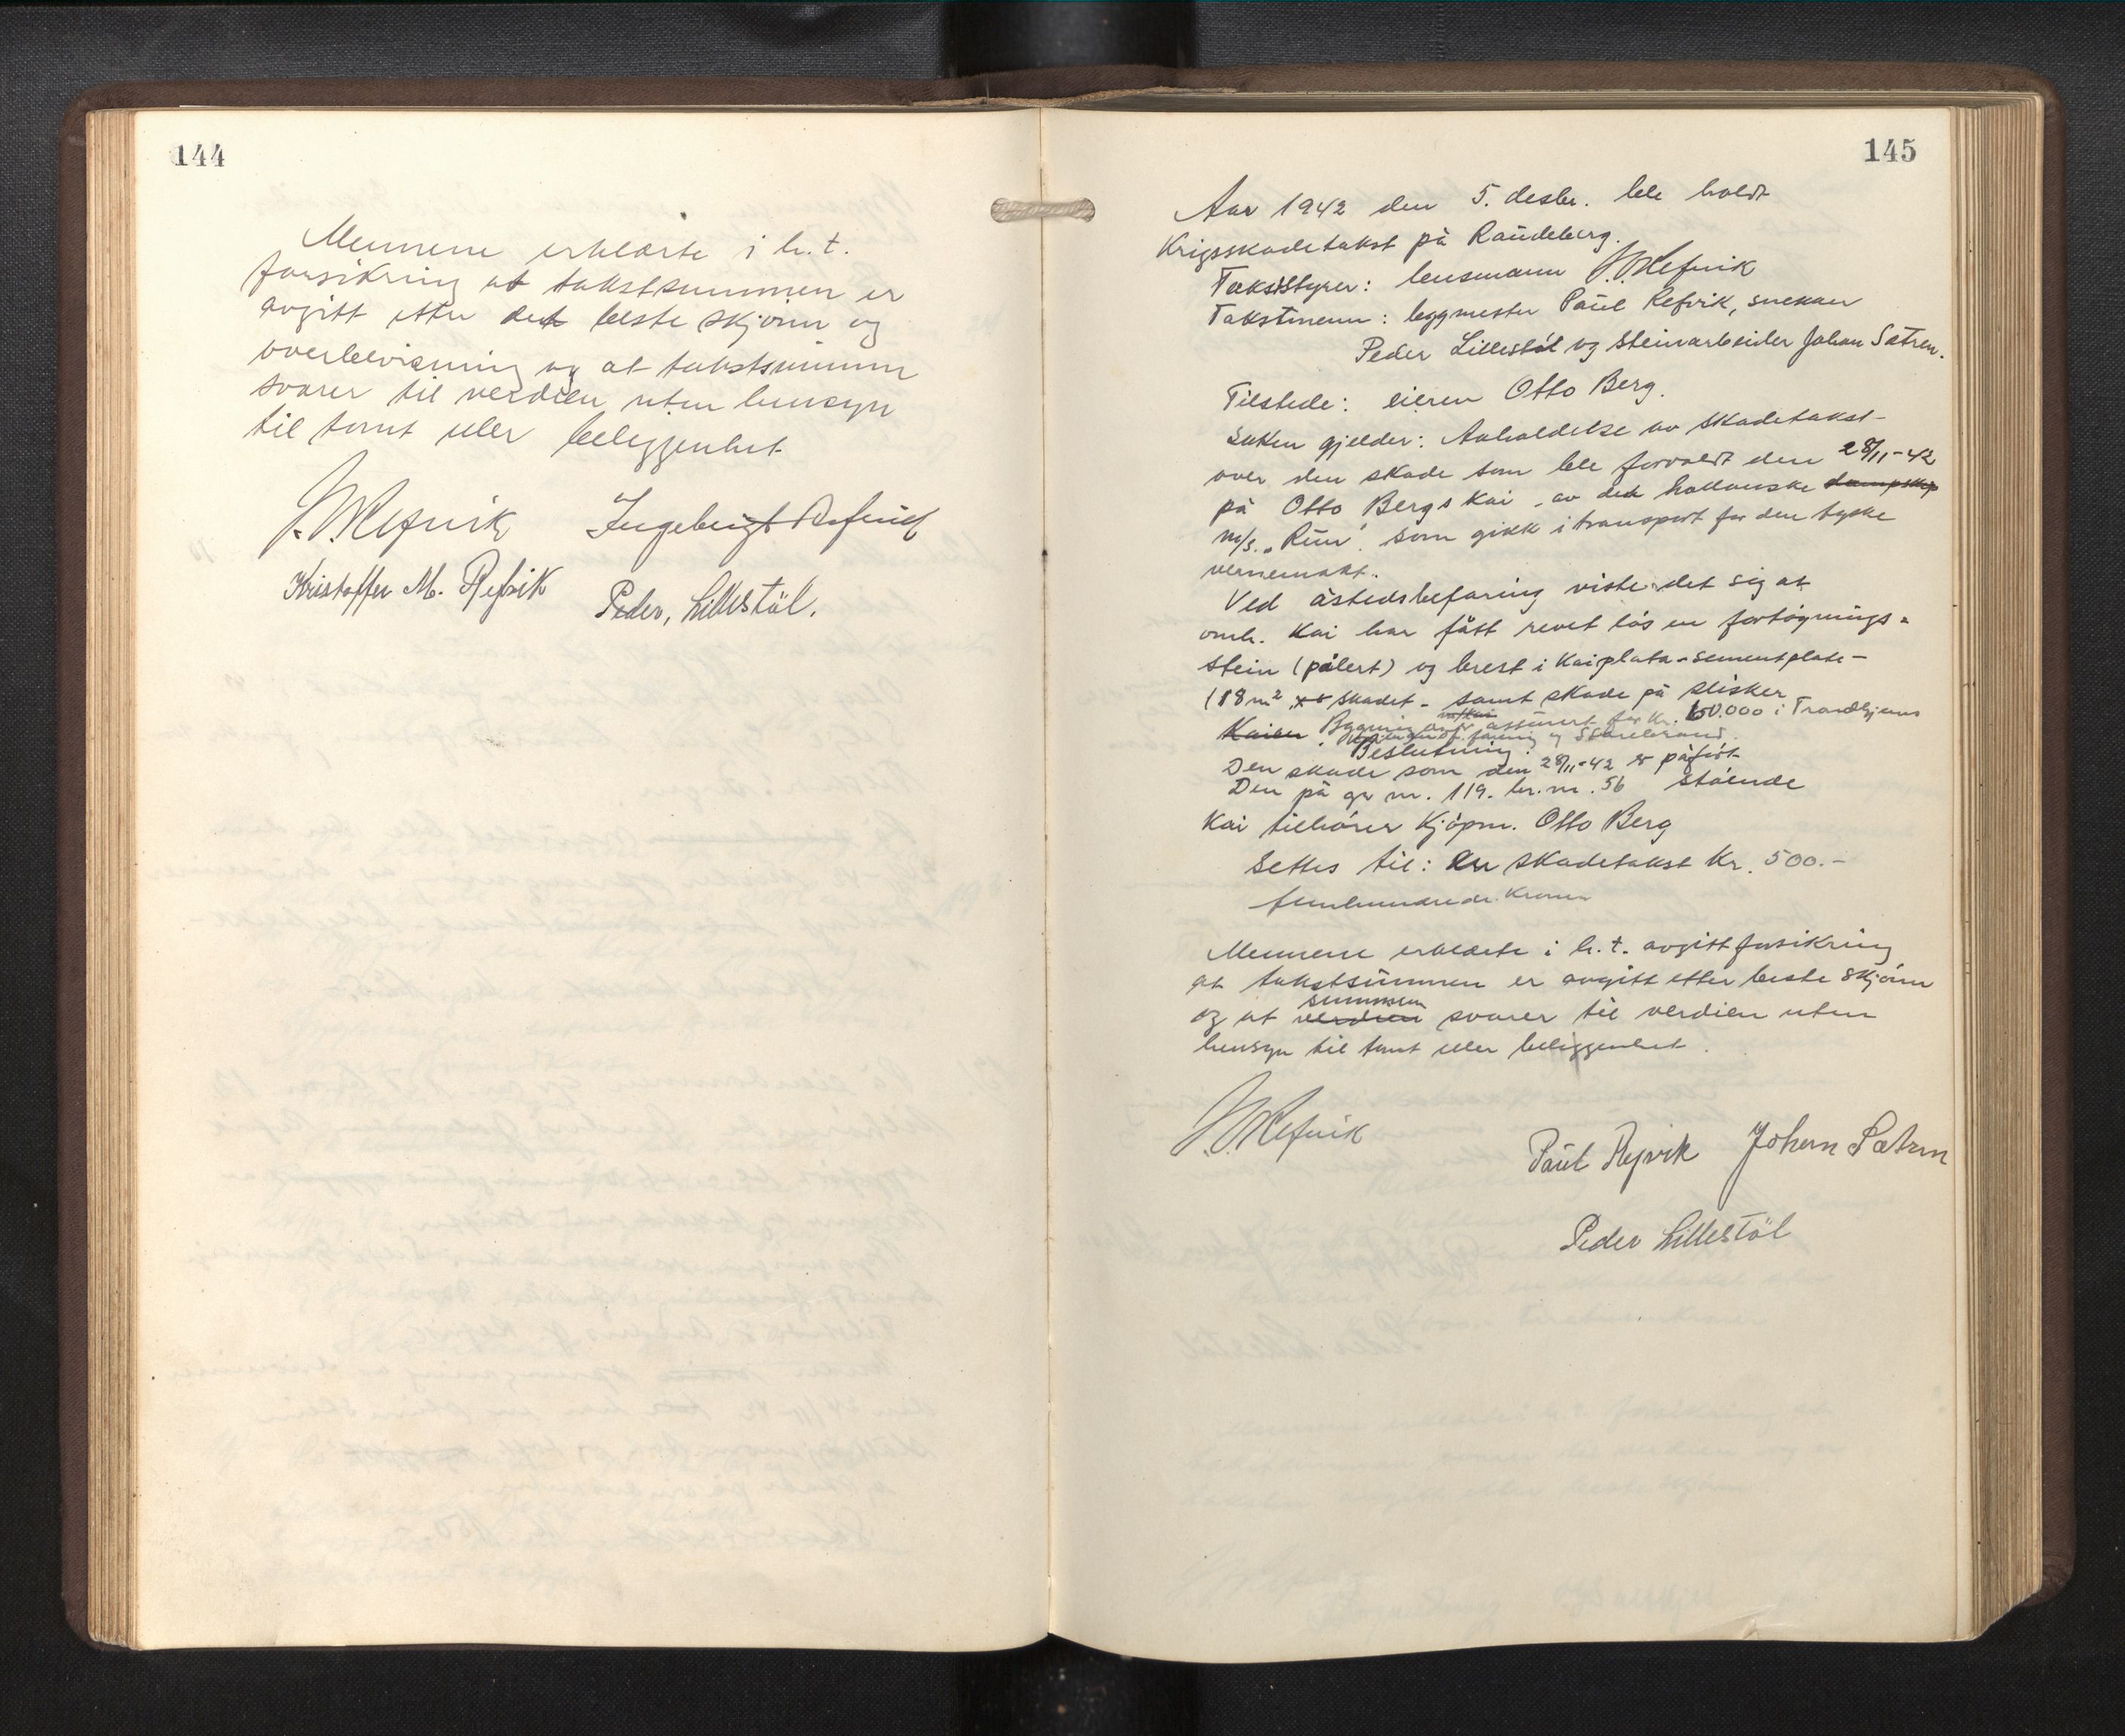 144
Mennene erklærte i h.t.
forsikring at takstsummen er
avgitt etter det beste skjønn og
overbevisning og at takstsummen
svarer til verdien uten hensyn
til tomt eller beliggenhet
Refvik Ingebrigt Refvik
Kristoffer M. Refvik Peder, Lillestöl.
145
Aar 1942 den 5. desbr. ble holdt
Krigsskadetakst på Raudeberg.
Takststyrer: lensmann Refvik
Takstmenn: byggmester Paul Refvik, snekker
Peder Lillestöl og steinarbeider Johan Sætren.
Tilstede: eieren Otto Berg.
Saken gjelder: Avholdelse av skadetakst
over den skade som ble forvoldt den 28/11-42
på Otto Bergs kai, av det hollanske dampskip
m/s. „Ruur". som gikk i transport for den tyske
vernemakt.
Ved åstedsbefaring viste det sig at
omh. kai har fått revet lös en fortöynings-
stein (pålert) og brest i kaiplata - sementplate -
(18 m² skadet - samt skade på slisker
Kaien Bygning m/kai assurert for kr. 60.000 i Trondhjems
og Storebrand.
Beslutning:
Den skade som den 28/11-42 er påfört
Den på gr nr. 119. br. nr. 56 stående
Kai tilhörer Kjöpm. Otto Berg
Settes til: en skadetakst Kr. 500.-
femhundrede kroner
Mennene erklærte i h.t. avgitt forsikring
at takstsummen er avgitt etter beste skjönn
summen
og at verdien svarer til verdien uten
hensyn til tomt eller beliggenhet.
Refvik
Paul Refvik Johan Sætren
Peder Lillestöl